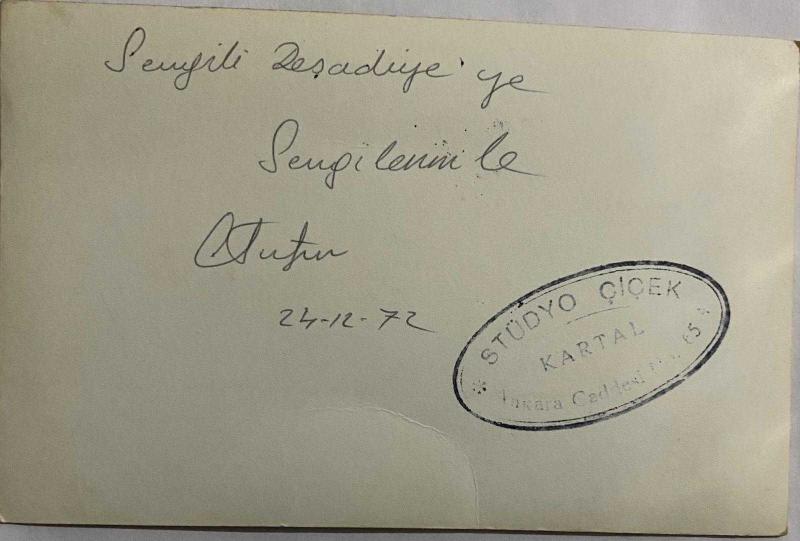 Sevgili Reşadiye'ye
Sevgilerimle
24-12-72
STÜDYO ÇİÇEK
KARTAL
Ankara Caddesi No. 65